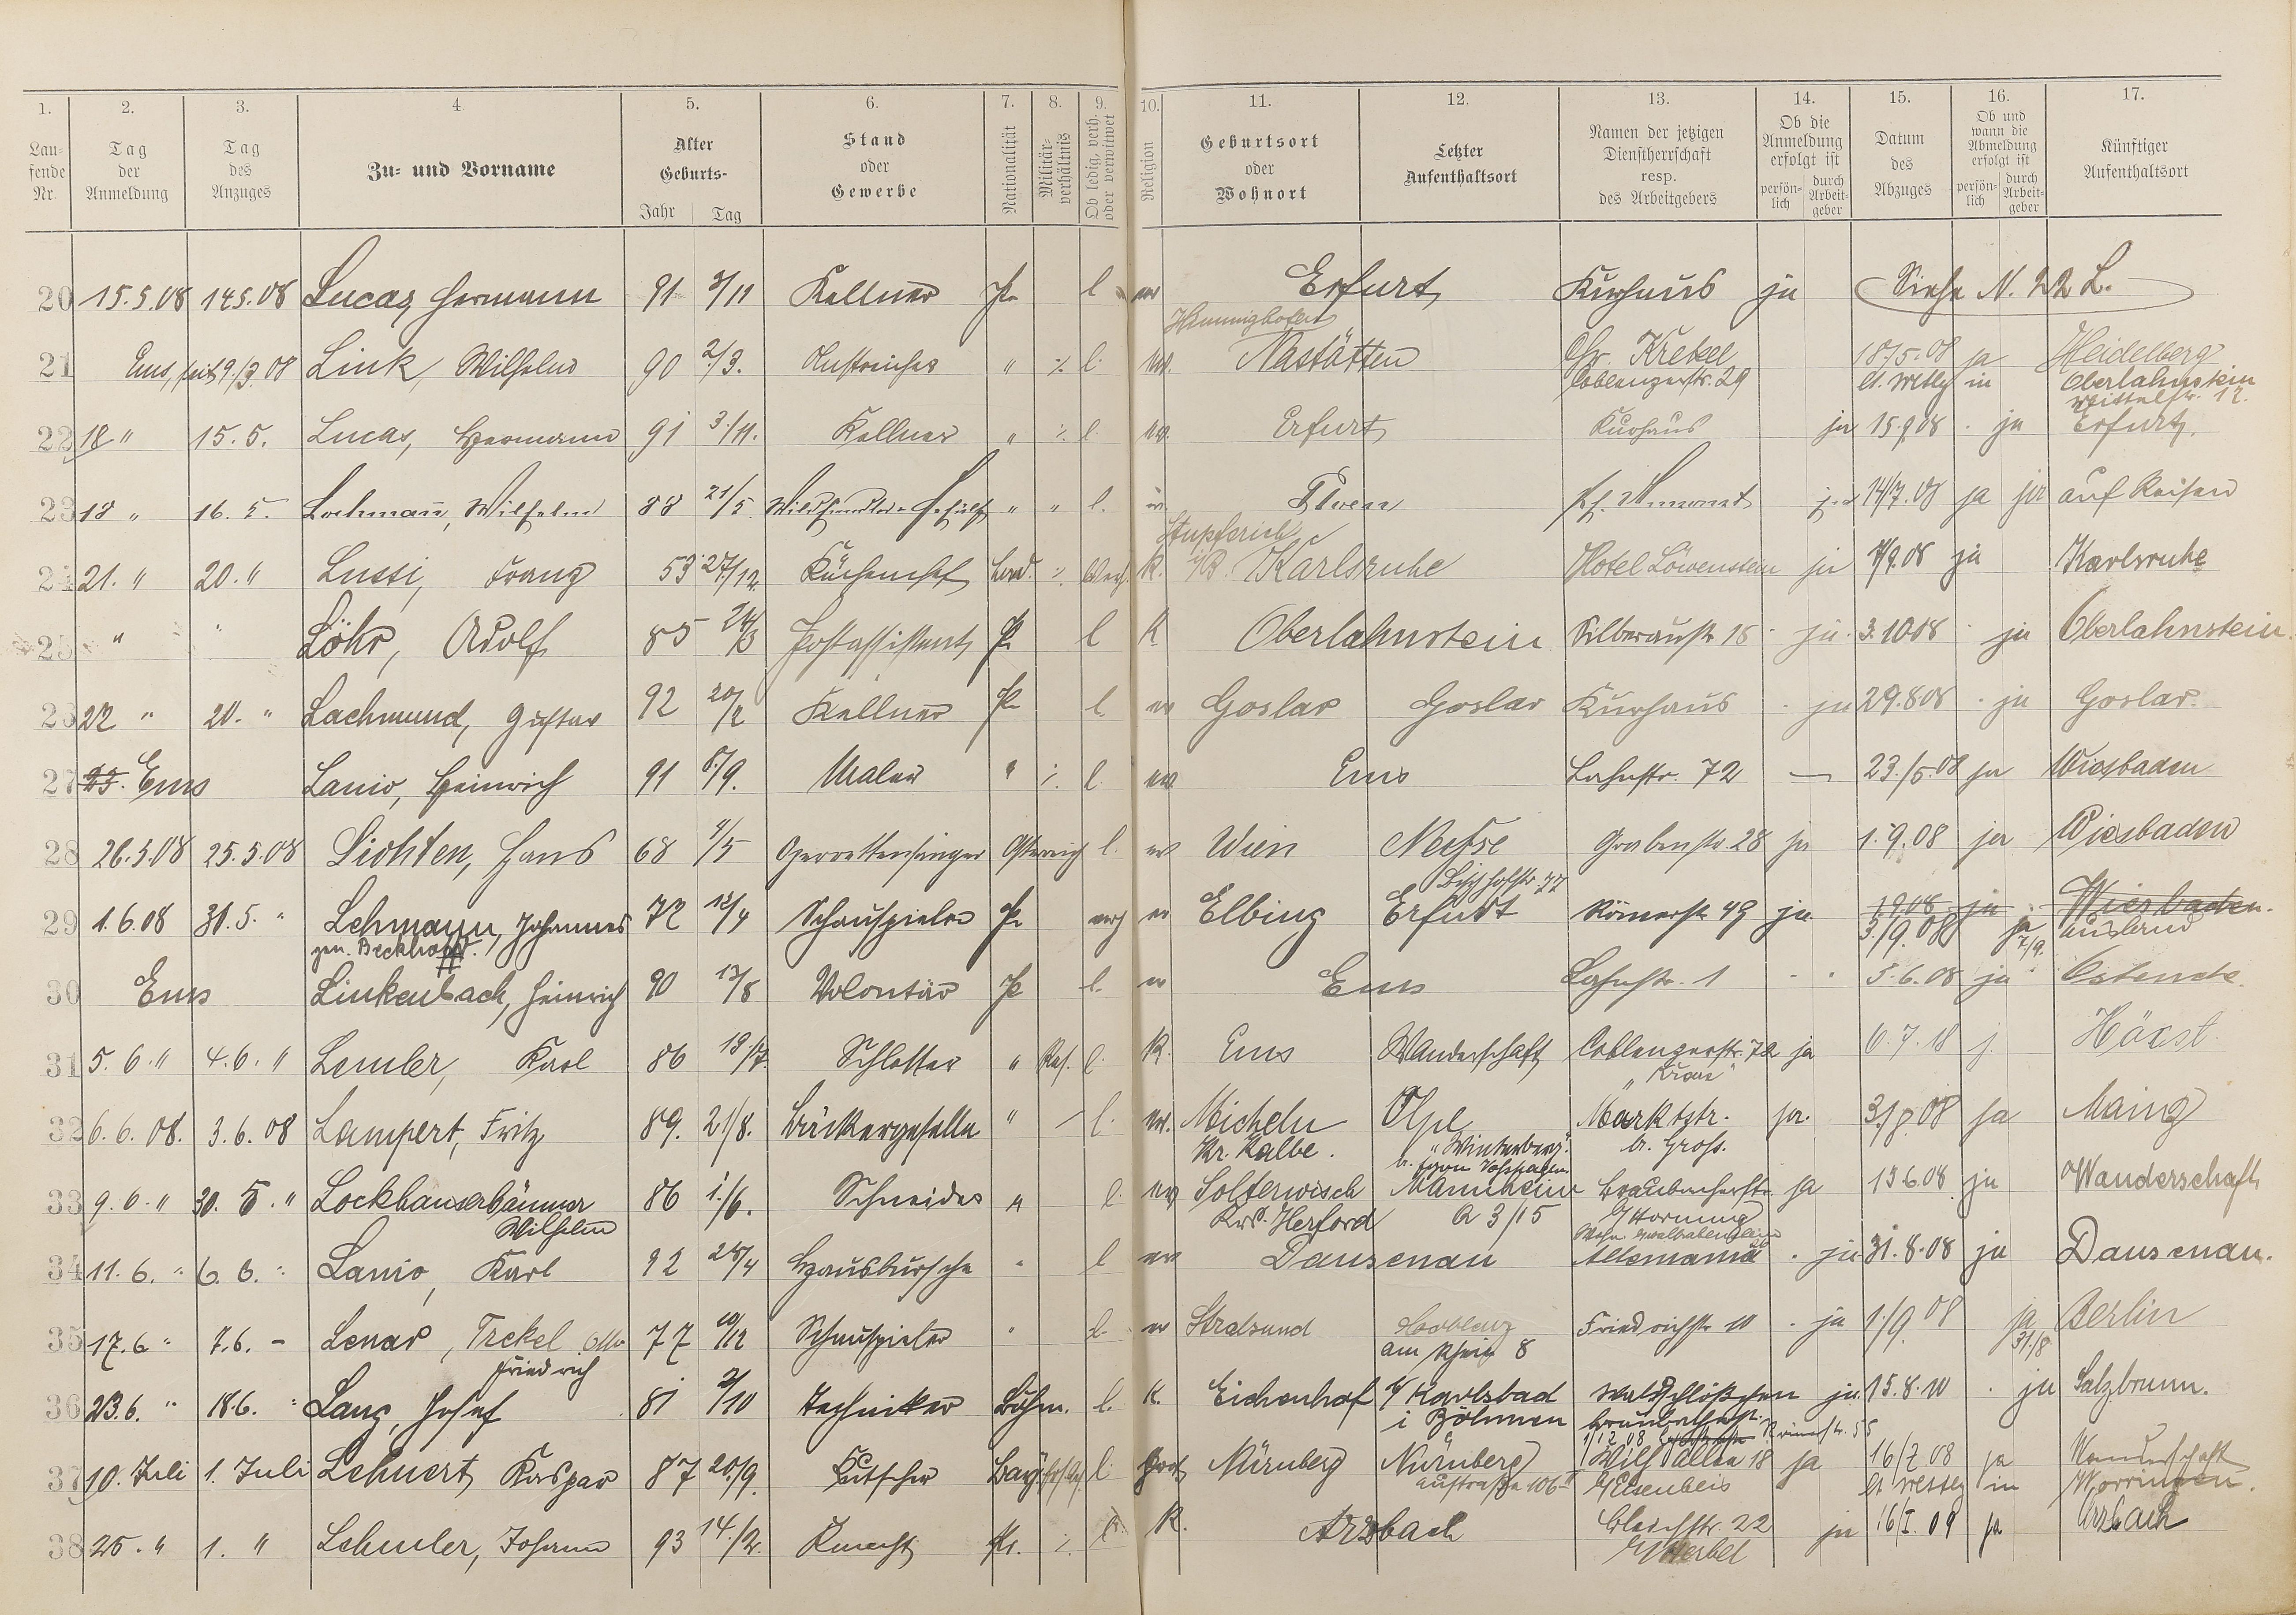 1. 2. 3. 4. 5. 6. 7. 8. 9. 10. 11. 12. 13. 14. 15. 16. 17.
Lau-fende Nr. Tag der Anmeldung Tag des Anzuges Zu- und Vorname Alter Geburts- Jahr Tag Stand oder Gewerbe Nationalität Militär-verhältnis Ob ledig, verh. oder verwitwet Religion Geburtsort oder Wohnort Letzter Aufenthaltsort Namen der jetzigen Dienstherrschaft resp. des Arbeitgebers Ob die Anmeldung erfolgt ist persön-lich durch Arbeit-geber Datum des Abzuges Ob und wann die Abmeldung erfolgt ist persön-lich durch Arbeit-geber Künftiger Aufenthaltsort
20 15.5.08 14.5.08 Lucas Hermann 91 3/11 Kellner Pr. l ev Erfurt Kurhaus ja Siehe N. 22 L.
21 Ems, seit 9/3 08 Link, Wilhelm 90 2/3. Anstreicher " ./. l. ev. Nastätten Chr. Krekel 18./5.08 ja Heidelberg
Coblenzerstr. 29 in Oberlahnstein
12.
22 18 " 15.5. Lucas, Hermann 91 3/11. Kellner " ./. l. ev. Erfurt Kurhaus ja 15.9.08 . ja Erfurt.
23 18 " 16.5. Lochmann, Wilhelm 88 21/5 " " l. ja 14/7.08 ja ja auf Reisen
Stupferich
24 21. " 20. " Lussi, Franz 53 27./12. Küchenchef ./. K. i/B. Karlsruhe Hotel Löwenstein ja 7/9.08 ja Karlsruhe
25 " " Löhr, Adolf 85 24/3 Postassistent Pr l K Oberlahnstein Silberaustr 18 . ja. 3.10 08 . ja Oberlahnstein.
26 22 " 20. " Lachmund, Gustav 92 20/2 Kellner Pr l. ev Goslar Goslar Kurhaus . ja 29.8 08 . ja Goslar.
27 Ems Lanio, Heinrich 91 8./9. Maler " ./. l. ev Ems Lahnstr. 72 — 23./5.08 ja Wiesbaden
28 26.5.08 25.5.08 Lichten, Hans 68 4/5 Operettensänger Österreich l. ev Wien Neisse Grabenstr. 28 ja 1.9.08 ja Wiesbaden
29 1.6.08 31.5. " Lehmann, Johannes 72 12/4 Schauspieler Pr ev Elbing Erfurt Römerstr 49 ja 1.9.08 ja Wiesbaden.
gen. Beckhoff. 3./9.08 ja 7/9. Ausland
30 Ems Linkenbach, Heinrich 90 13/8 Volontär Pr l. ev Ems Lahnstr. 1 . . 5.6.08 ja Ostende.
31 5.6. " 4.6. " Lemler, Karl 86 Schlosser " Res. l. K. Ems Wanderschaft Coblenzerstr. 72 ja Höxst.
32 6.6.08. 3.6.08 Lampert, Fritz 89. 21/8. Bäckergeselle " — l. ev. Micheln Olpe Marktstr. ja. 31/8 08 ja Mainz
Kr. Kalbe. "Winterberg" b. Gross.
33 9.6. " 30.5. " Lockhauserbäumer 86 1./6. Schneider " l. ev Solterwisch Mannheim Braubacherstr. ja 13 6.08 ja Wanderschaft
Wilhelm Krs. Herford A 3/15 Hornung
34 11.6. " 6.6. " Lanio, Karl 92 Hausbursche " l ev Dausenau Allemania . ja 31.8.08 ja Dausenau.
35 17.6 " 7.6. – Lenar, Trekel Otto 77 10/12 Schauspieler " l. ev Stralsund Coblenz Friedrichstr 10 . ja 1./9 08 ja Berlin
Friedrich am Rhein 8 31./8
36 23.6. " 18.6. " Lang, Josef 81 2/10 Techniker Böhm. l. K. Eichenhof b/ Karlsbad Waldschlößchen ja. 15.8.10 . ja Salzbrunn.
i Böhmen
37 10. Juli 1. Juli Lehnert Kaspar 87 20./9. Kutscher Bay l. Nürnberg Nürnberg Wilh Allee 18 ja 16/7 08 ja Wanderschaft
106 II G/Eisenbeis in Worringen.
38 25. " 1. " Lehmler, Johann 93 14./2. Knecht Pr. ./. l. K. Arzbach Bleichstr. 22 ja 16/I. 09 ja Arzbach